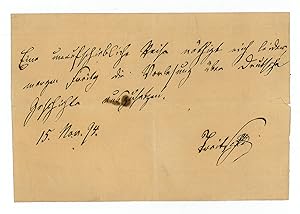 Eine unaufschiebliche Reise nöthigt mich leider,
morgen Freitg die Vorlesung über Deutsche
Geschichte auszusetzen.
15. Nov. 94.
Treitschke